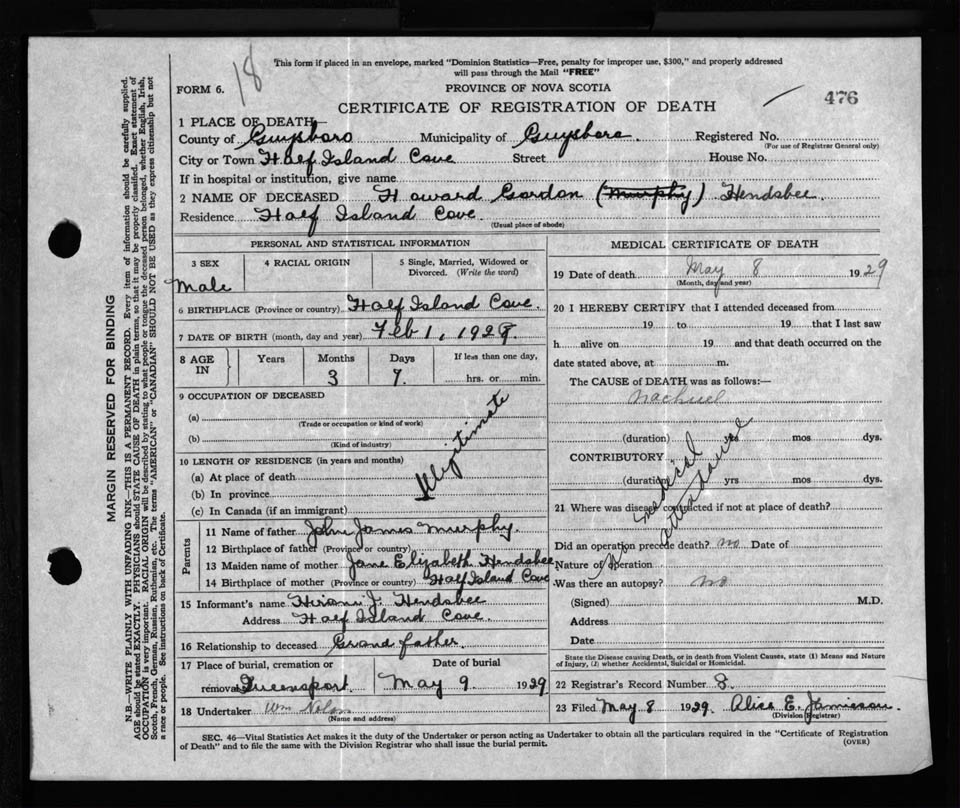 18
This form if placed in an envelope, marked "Dominion Statistics—Free, penalty for improper use, $300," and properly addressed
will pass through the Mail "FREE"
FORM 6.
PROVINCE OF NOVA SCOTIA
476
CERTIFICATE OF REGISTRATION OF DEATH
1 PLACE OF DEATH
County of Guysboro Municipality of Guysboro Registered No.
(For use of Registrar General only)
City or Town Half Island Cove Street House No.
If in hospital or institution, give name
2 NAME OF DECEASED Howard Gordon (Murphy) Hendsbee
Residence Half Island Cove.
(Usual place of abode)
PERSONAL AND STATISTICAL INFORMATION
3 SEX 4 RACIAL ORIGIN 5 Single, Married, Widowed or
Divorced. (Write the word)
Male
6 BIRTHPLACE (Province or country) Half Island Cove.
7 DATE OF BIRTH (month, day and year) Feb 1, 1929.
8 AGE IN Years Months Days If less than one day,
3 7. hrs. or min.
9 OCCUPATION OF DECEASED
(a)
(Trade or occupation or kind of work)
(b)
(Kind of industry)
Illegitimate
10 LENGTH OF RESIDENCE (in years and months)
(a) At place of death
(b) In province
(c) In Canada (if an immigrant)
Parents
11 Name of father John James Murphy.
12 Birthplace of father (Province or country)
13 Maiden name of mother Jane Elizabeth Hendsbee
14 Birthplace of mother (Province or country) Half Island Cove
15 Informant's name Hiram J. Hendsbee
Address Half Island Cove.
16 Relationship to deceased Grand father.
17 Place of burial, cremation or Date of burial
removal Queensport. May 9 1929
18 Undertaker Wm Nolan
(Name and address)
MEDICAL CERTIFICATE OF DEATH
19 Date of death May 8 1929
(Month, day and year)
20 I HEREBY CERTIFY that I attended deceased from
19 to 19 that I last saw
h alive on 19 and that death occurred on the
date stated above, at m.
The CAUSE of DEATH was as follows:—
(duration) yrs mos dys.
CONTRIBUTORY
(duration) yrs mos dys.
No medical attendance
21 Where was disease contracted if not at place of death?
Did an operation precede death? no Date of
Nature of operation
Was there an autopsy? no
(Signed) M.D.
Address
Date
State the Disease causing Death, or in death from Violent Causes, state (1) Means and Nature
of Injury, (2) whether Accidental, Suicidal or Homicidal.
22 Registrar's Record Number 8.
23 Filed May 8 1929. Alice E. Jamieson.
(Division Registrar)
SEC. 46—Vital Statistics Act makes it the duty of the Undertaker or person acting as Undertaker to obtain all the particulars required in the "Certificate of Registration
of Death" and to file the same with the Division Registrar who shall issue the burial permit.
(OVER)
MARGIN RESERVED FOR BINDING
N.B.—WRITE PLAINLY WITH UNFADING INK—THIS IS A PERMANENT RECORD. Every item of information should be carefully supplied.
AGE should be stated EXACTLY. PHYSICIANS should STATE CAUSE OF DEATH in plain terms, so that it may be properly classified. Exact statement of
OCCUPATION is very important. RACIAL ORIGIN will be described by stating to what people or tongue the deceased person belonged, whether English, Irish,
Scotch, French, German, Russian, Ruthenian, etc. The terms "AMERICAN" or "CANADIAN" SHOULD NOT BE USED as they express citizenship but not
a race or people. See instructions on back of Certificate.